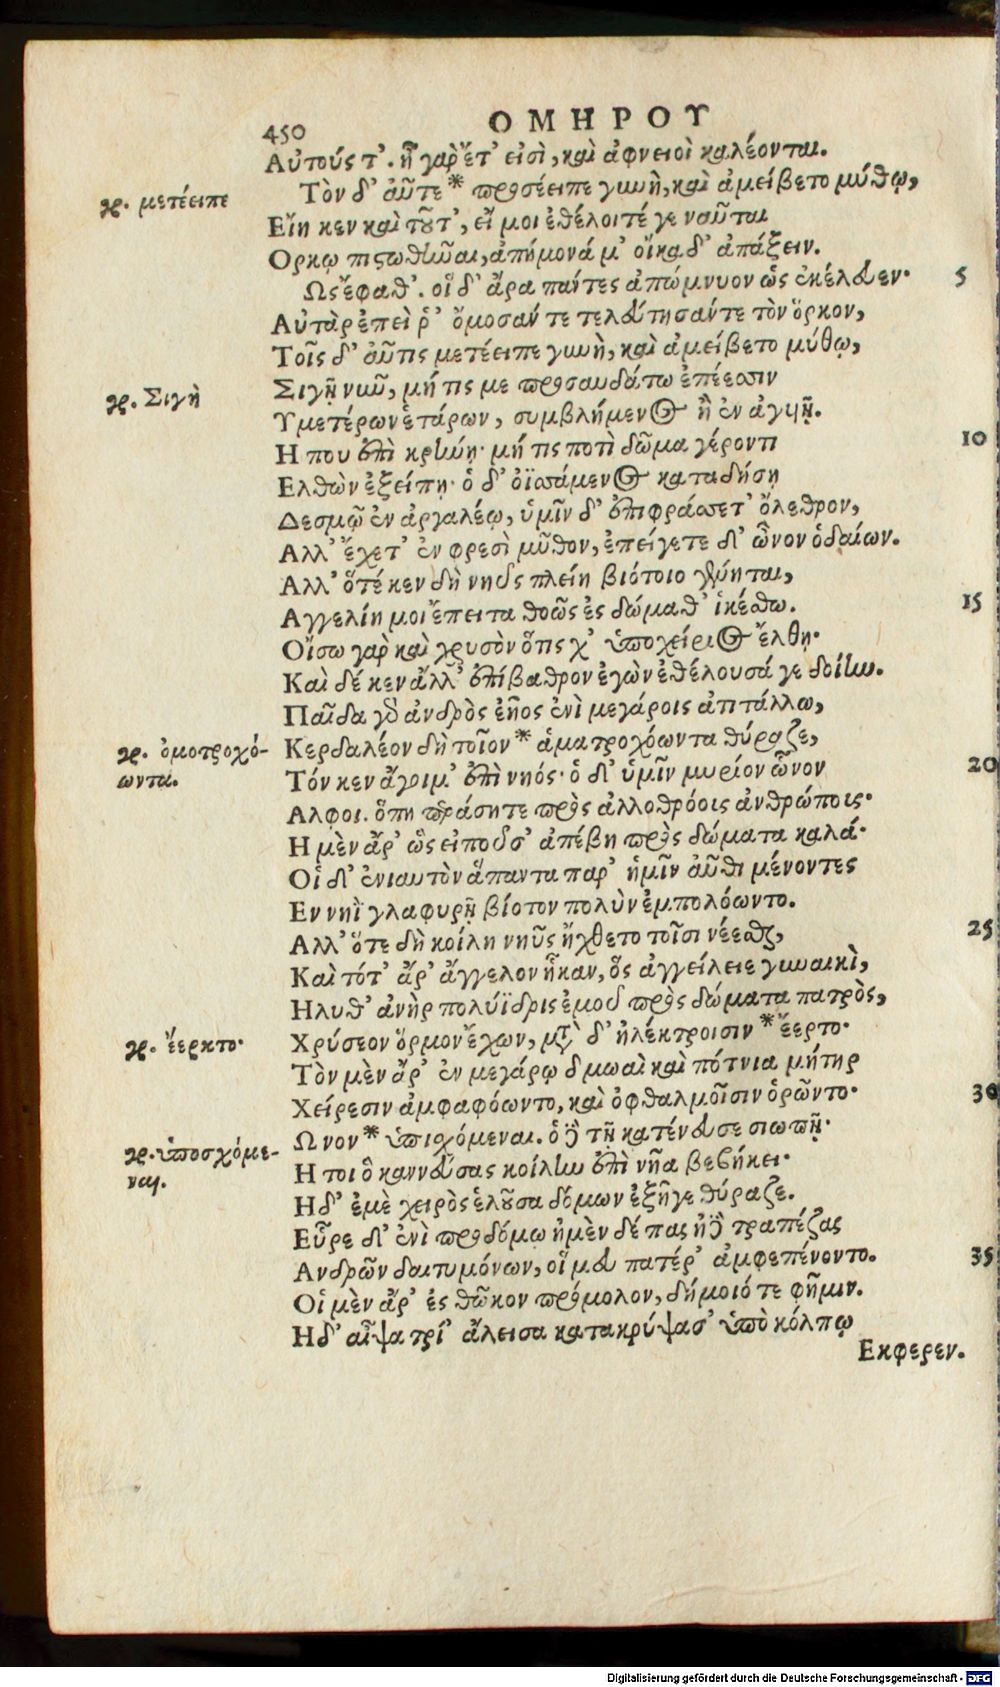 450
ΟΜΗΡΟΥ
Αὐτούς τ'. ἦ γὰρ ἔτ' εἰσὶ, καὶ ἀφνειοὶ καλέονται.
Τὸν δ' αὖτε * προσέειπε γυνὴ, καὶ ἀμείβετο μύθῳ,
γρ. μετέειπε
Εἴη κεν καὶ τοῦτ', εἴ μοι ἐθέλοιτέ γε ναῦται
Ορκῳ πιστωθῆναι, ἀπήμονά μ' οἴκαδ' ἀπάξειν.
Ως ἔφαθ'. οἱ δ' ἄρα πάντες ἀπώμνυον ὡς ἐκέλευεν·
5
Αὐτὰρ ἐπεὶ ῥ' ὄμοσάν τε τελεύτησάν τε τὸν ὅρκον,
Τοῖς δ' αὖτις μετέειπε γυνὴ, καὶ ἀμείβετο μύθῳ,
Σιγῇ νῦν, μή τις με προσαυδάτω ἐπέεσσιν
γρ. Σιγὴ
Υμετέρων ἑτάρων, συμβλήμενος ἢ ἐν ἀγυιῇ.
Η που ἐπὶ κρήνῃ· μή τις ποτὶ δῶμα γέροντι
10
Ελθὼν ἐξείπῃ· ὁ δ' ὀϊσσάμενος καταδήσῃ
Δεσμῷ ἐν ἀργαλέῳ, ὑμῖν δ' ἐπιφράσσετ' ὄλεθρον,
Αλλ' ἔχετ' ἐν φρεσὶ μῦθον, ἐπείγετε δ' ὦνον ὁδαίων.
Αλλ' ὅτέ κεν δὴ νηῦς πλείη βιότοιο γένηται,
Αγγελίη μοι ἔπειτα θοῶς ἐς δώμαθ' ἱκέσθω.
15
Οἴσω γὰρ καὶ χρυσὸν ὅτις χ' ὑποχείριος ἔλθῃ·
Καὶ δέ κεν ἄλλ' ἐπίβαθρον ἐγὼν ἐθέλουσά γε δοίην.
Παῖδα γὰρ ἀνδρὸς ἑῆος ἐνὶ μεγάροις ἀτιτάλλω,
Κερδαλέον δὴ τοῖον * ἁματροχόωντα θύραζε,
γρ. ὁμοτροχό-
ωντα.
Τόν κεν ἄγοιμ' ἐπὶ νηός· ὁ δ' ὑμῖν μυρίον ὦνον
20
Αλφοι. ὅπη πράσητε πρὸς ἀλλοθρόοις ἀνθρώποις·
Η μὲν ἄρ' ὣς εἰποῦσ' ἀπέβη πρὸς δώματα καλά·
Οἱ δ' ἐνιαυτὸν ἅπαντα παρ' ἡμῖν αὖθι μένοντες
Εν νηῒ γλαφυρῇ βίοτον πολὺν ἐμπολόωντο.
Αλλ' ὅτε δὴ κοίλη νηῦς ἤχθετο τοῖσι νέεσθαι,
25
Καὶ τότ' ἄρ' ἄγγελον ἧκαν, ὃς ἀγγείλειε γυναικὶ,
Ηλυθ' ἀνὴρ πολύϊδρις ἐμοῦ πρὸς δώματα πατρὸς,
Χρύσεον ὅρμον ἔχων, μετὰ δ' ἠλέκτροισιν * ἔερτο·
γρ. ἔερκτο·
Τὸν μὲν ἄρ' ἐν μεγάρῳ δμωαὶ καὶ πότνια μήτηρ
Χείρεσιν ἀμφαφόωντο, καὶ ὀφθαλμοῖσιν ὁρῶντο·
30
Ωνον * ὑπισχόμεναι. ὁ δὲ τῇ κατένευσε σιωπῇ·
γρ. ὑποσχόμε-
ναι.
Η τοι ὃ καννεύσας κοίλην ἐπὶ νῆα βεβήκει·
Ηδ' ἐμὲ χειρὸς ἑλοῦσα δόμων ἐξῆγε θύραζε.
Εὗρε δ' ἐνὶ προδόμῳ ἠμὲν δέπας ἠδὲ τραπέζας
Ανδρῶν δαιτυμόνων, οἵ μευ πατέρ' ἀμφεπένοντο.
35
Οἱ μὲν ἄρ' ἐς θῶκον πρόμολον, δήμοιό τε φῆμιν.
Ηδ' αἶψα τρί' ἄλεισα κατακρύψασ' ὑπὸ κόλπῳ
Εκφερεν.
Digitalisierung gefördert durch die Deutsche Forschungsgemeinschaft - DFG